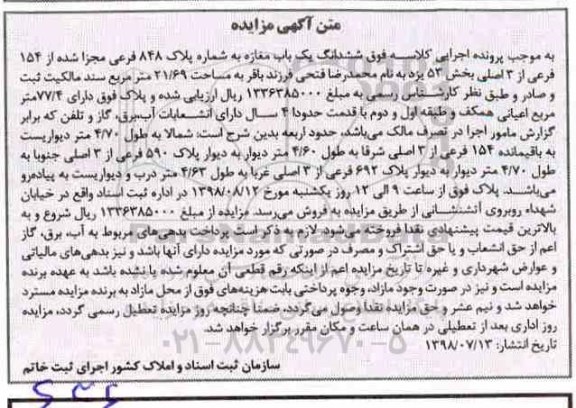 متن آگهی مزایده
به موجب پرونده اجرایی کلاسه فوق ششدانگ یک باب مغازه به شماره پلاک ۸۴۸ فرعی مجزا شده از ۱۵۴
فرعی از ۳ اصلی بخش ۵۳ یزد به نام محمدرضا فتحی فرزند باقر به مساحت ۲۱/۶۹ متر مربع سند مالکیت ثبت
و صادر و طبق نظر کارشناس رسمی به مبلغ ۱۳۳۶۳۸۵۰۰۰ ریال ارزیابی شده و پلاک فوق دارای ۷۷/۴متر
مربع اعیانی همکف و طبقه اول و دوم با قدمت حدودا ۴ سال دارای انشعابات آب،برق، گاز و تلفن که برابر
گزارش مامور اجرا در تصرف مالک می‌باشد، حدود اربعه بدین شرح است: شمالا به طول ۴/۷۰ متر دیواریست
به باقیمانده ۱۵۴ فرعی از ۳ اصلی شرقا به طول ۴/۶۰ متر دیوار به دیوار پلاک ۵۹۰ فرعی از ۳ اصلی جنوبا به
طول ۴/۷۰ متر دیوار به دیوار پلاک ۶۹۲ فرعی از ۳ اصلی غربا به طول ۴/۶۳ متر درب و دیواریست به پیاده‌رو
می‌باشد. پلاک فوق از ساعت ۹ الی ۱۲ روز یکشنبه مورخ ۱۳۹۸/۰۸/۱۲ در اداره ثبت اسناد واقع در خیابان
شهداء روبروی آتشنشانی از طریق مزایده به فروش می‌رسد. مزایده از مبلغ ۱۳۳۶۳۸۵۰۰۰ ریال شروع و به
بالاترین قیمت پیشنهادی نقدا فروخته می‌شود، لازم به ذکر است پرداخت بدهی‌های مربوط به آب، برق، گاز
اعم از حق انشعاب و یا حق اشتراک و مصرف در صورتی که مورد مزایده دارای آنها باشد و نیز بدهی‌های مالیاتی
و عوارض شهرداری و غیره تا تاریخ مزایده اعم از اینکه رقم قطعی آن معلوم شده یا نشده باشد به عهده برنده
مزایده است و نیز در صورت وجود مازاد، وجوه پرداختی بابت هزینه‌های فوق از محل مازاد به برنده مزایده مسترد
خواهد شد و نیم عشر و حق مزایده نقدا وصول می‌گردد. ضمنا چنانچه روز مزایده تعطیل رسمی گردد، مزایده
روز اداری بعد از تعطیلی در همان ساعت و مکان مقرر برگزار خواهد شد.
تاریخ انتشار: ۱۳۹۸/۰۷/۱۳
سازمان ثبت اسناد و املاک کشور اجرای ثبت خاتم
۰۲۱-۸۸۳۴۹۶۷۰-۵